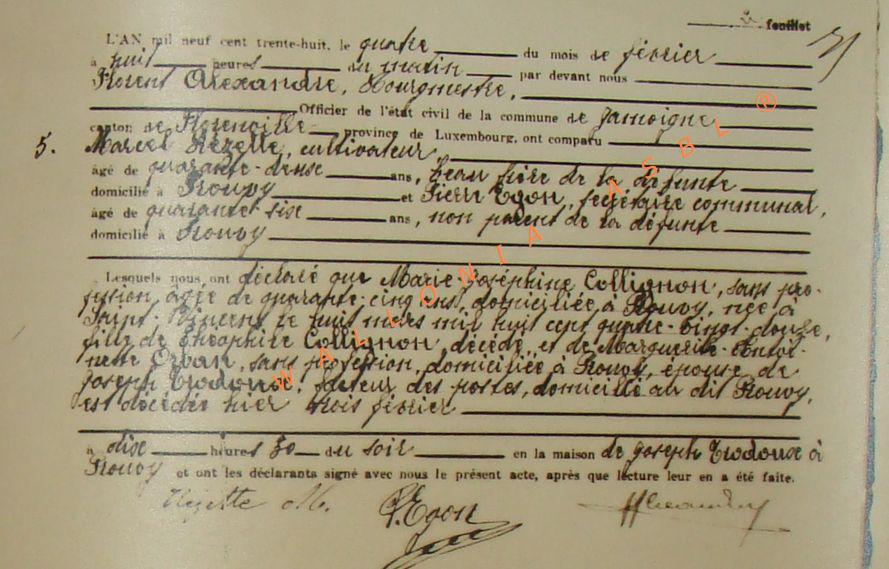 feuillet
L'AN mil neuf cent trente-huit, le quatre du mois de février
à huit heures du matin par devant nous
Florent Alexandre, Bourgmestre,
Officier de l'état civil de la commune de Jamoigne
canton de Florenville province de Luxembourg, ont comparu
5. Marcel Nézette, cultivateur
âgé de quarante-deux ans, beau frère de la défunte
domicilié à Rouvoy et Pierre Egon, secrétaire communal,
âgé de quarante six ans, non parent de la défunte
domicilié à Rouvoy
Lesquels nous ont déclaré que Marie-Joséphine Collignon, sans pro-
fession, âgée de quarante-cinq ans, domiciliée à Rouvoy, née à
Saint-Vincent le huit mars mil huit cent quatre-vingt-douze,
fille de Théophile Collignon, décédé, et de Marguerite-Antoi-
nette Orban, sans profession, domiciliée à Rouvoy, épouse de
Joseph Trodoux, facteur des postes, domicilié au dit Rouvoy,
est décédée hier trois février
à dix heures 30 du soir en la maison de Joseph Trodoux à
Rouvoy et ont les déclarants signé avec nous le présent acte, après que lecture leur en a été faite.
Nézette M. P. Egon
WALLONIA ASBL ®